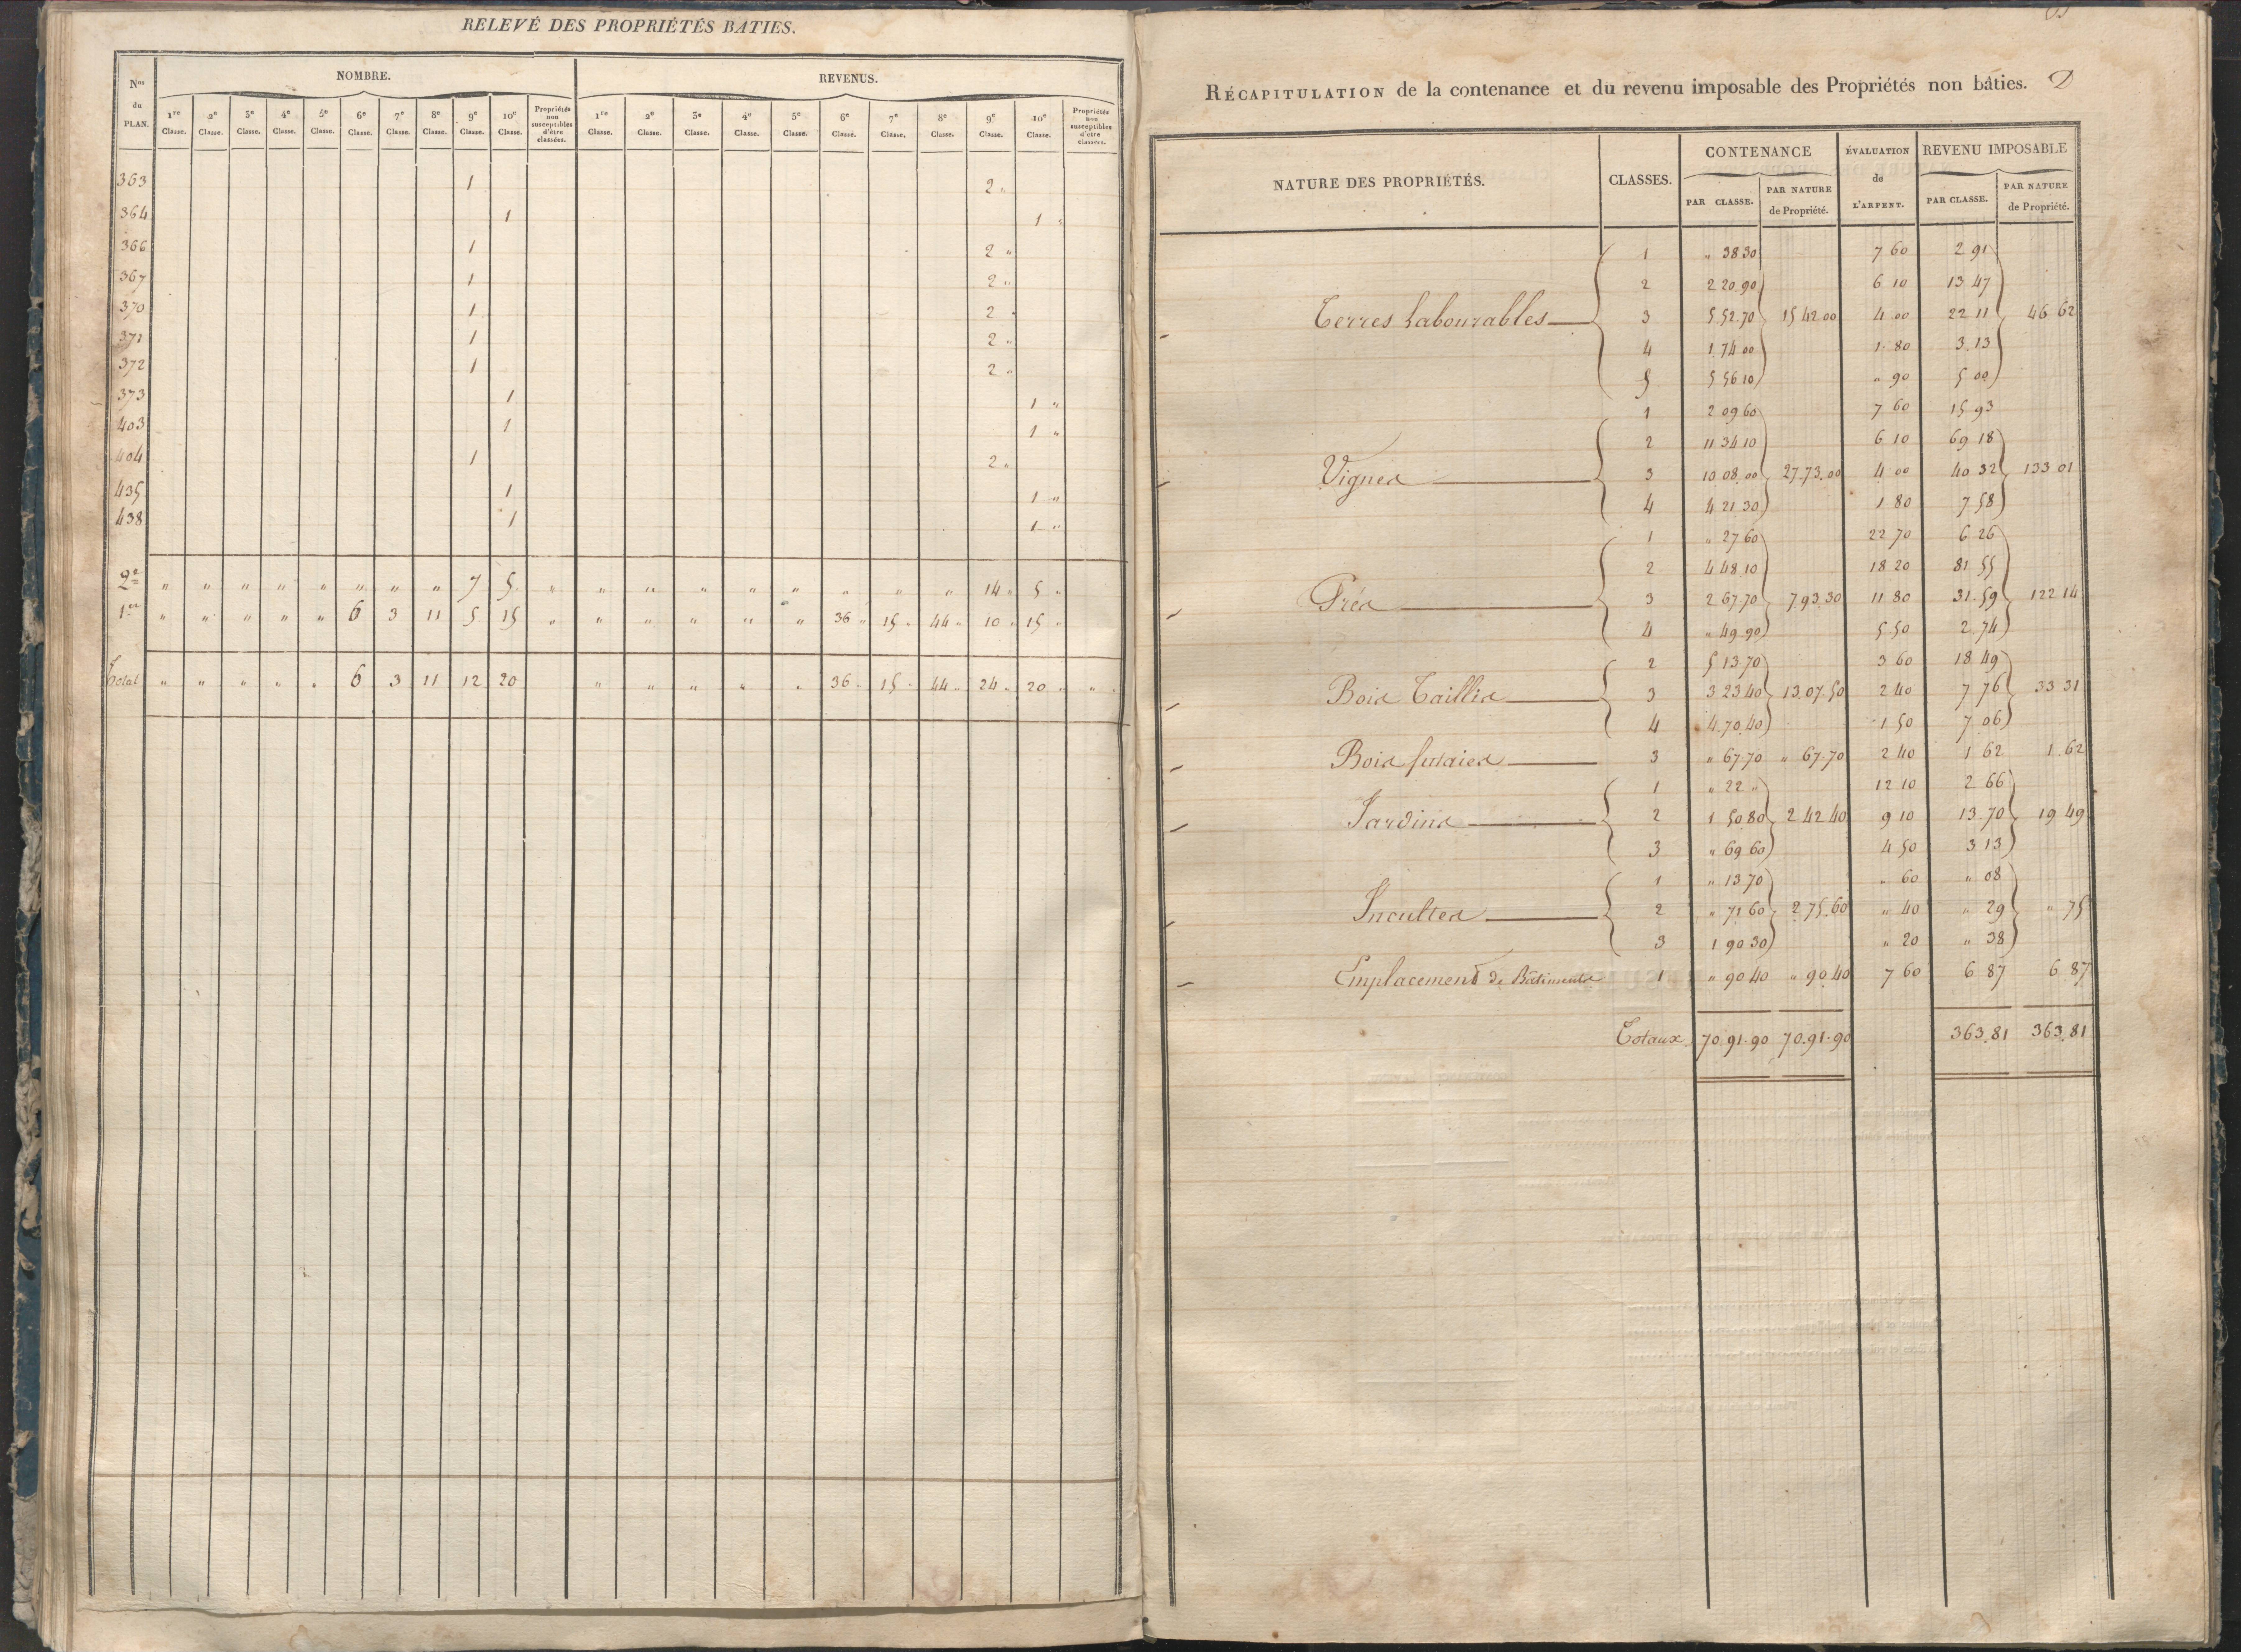 RELEVÉ DES PROPRIÉTÉS BATIES.
Nos du PLAN. NOMBRE. REVENUS.
1re Classe. 2e Classe. 3e Classe. 4e Classe. 5e Classe. 6e Classe. 7e Classe. 8e Classe. 9e Classe. 10e Classe. Propriétés non susceptibles d'être classées. 1re Classe. 2e Classe. 3e Classe. 4e Classe. 5e Classe. 6e Classe. 7e Classe. 8e Classe. 9e Classe. 10e Classe. Propriétés non susceptibles d'être classées.
363 1 2 "
364 1 1 "
366 1 2 "
367 1 2 "
370 1 2 "
371 1 2 "
372 1 2 "
373 1 1 "
403 1 1 "
404 1 2 "
435 1 1 "
438 1 1 "
2e " " " " " " " " 7 5 " " " " " " " " " 14 " 5 "
1er " " " " " 6 3 11 5 15 " " " " " " 36 " 15 " 44 " 10 " 15 "
Total " " " " " 6 3 11 12 20 " " " " " 36 " 15 " 44 " 24 " 20 " "
RÉCAPITULATION de la contenance et du revenu imposable des Propriétés non bâties. D
NATURE DES PROPRIÉTÉS. CLASSES. CONTENANCE ÉVALUATION de L'ARPENT. REVENU IMPOSABLE
PAR CLASSE. PAR NATURE de Propriété. PAR CLASSE. PAR NATURE de Propriété.
1 " 38 30 7 60 2 91
2 2 20 90 6 10 13 47
Terres Labourables 3 5 52 70 15 42 00 4 00 22 11 46 62
4 1 74 00 1 80 3 13
5 5 56 10 " 90 5 00
1 2 09 60 7 60 15 93
2 11 34 10 6 10 69 18
Vignes 3 10 08 00 27 73 00 4 00 40 32 133 01
4 4 21 30 1 80 7 58
1 " 27 60 22 70 6 26
2 4 48 10 18 20 81 55
Prés 3 2 67 70 7 93 30 11 80 31 59 122 14
4 " 49 90 5 50 2 74
2 5 13 70 3 60 18 49
Bois Taillis 3 3 23 40 13 07 50 2 40 7 76 33 31
4 4 70 40 1 50 7 06
Bois futaies 3 " 67 70 " 67 70 2 40 1 62 1 62
1 " 22 " 12 10 2 66
Jardins 2 1 50 80 2 42 40 9 10 13 70 19 49
3 " 69 60 4 50 3 13
1 " 13 70 " 60 " 08
Incultes 2 " 71 60 2 75 60 " 40 " 29 " 75
3 1 90 30 " 20 " 38
Emplacement de Bâtiments 1 " 90 40 " 90 40 7 60 6 87 6 87
Totaux 70 91 90 70 91 90 363 81 363 81